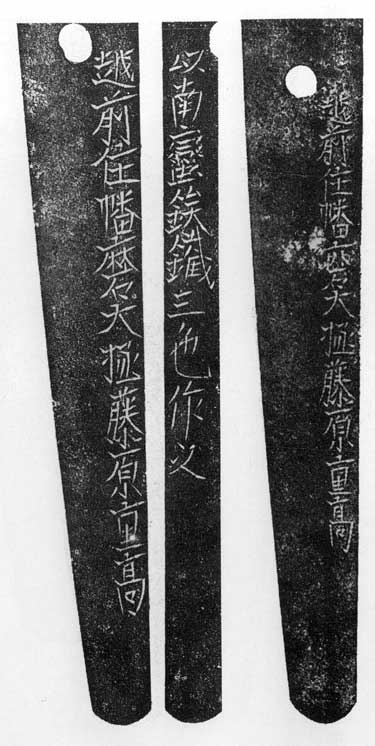 越前住幡磨大掾藤原重高
以南蠻三也作之
越前住幡磨大掾藤原重高